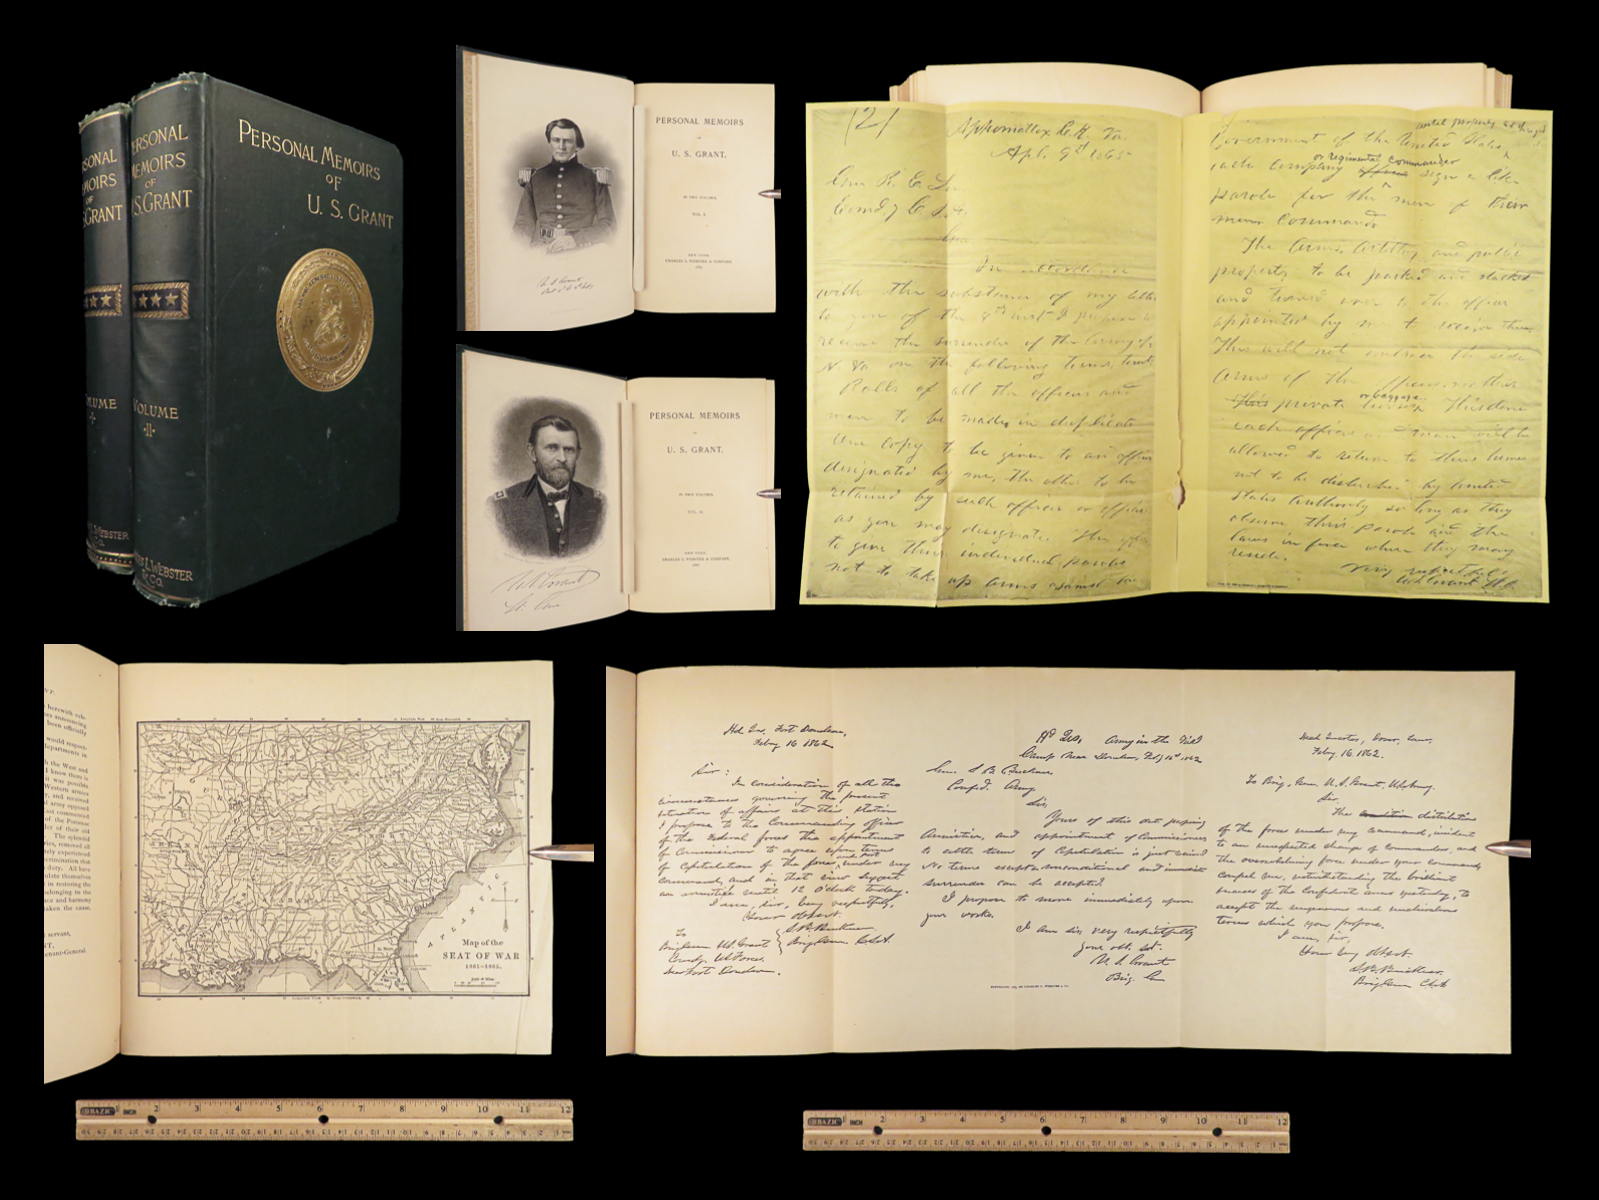 PERSONAL
MEMOIRS
OF
U.S. GRANT
VOLUME
I
PERSONAL
MEMOIRS
OF
U.S. GRANT
VOLUME
·II·
WEBSTER
& Co.
PERSONAL MEMOIRS
OF
U. S. GRANT
PERSONAL MEMOIRS
OF
U. S. GRANT.
IN TWO VOLUMES.
VOL. I.
NEW YORK:
CHARLES L. WEBSTER & COMPANY.
PERSONAL MEMOIRS
OF
U. S. GRANT.
IN TWO VOLUMES.
VOL. II.
NEW YORK:
CHARLES L. WEBSTER & COMPANY.
U. S. Grant
Lt. Gen
(2)
Appomattox C. H. Va.
Apl. 9th 1865
Gen R. E. Lee
Comd.g C. S. A.
Gen
In accordance
with the substance of my letter
to you of the 8th inst. I propose to
receive the surrender of the Army of
N. Va on the following terms, to wit:
Rolls of all the officers and
men to be made in duplicate
One copy to be given to an officer
designated by me, the other to be
retained by such officer or officers
as you may designate. The officers
to give their individual paroles
not to take up arms against the
Government of the United States
until properly exchanged
or regimental commander
each company officer sign a like
parole for the men of their
commands
The Arms, Artillery and public
property to be parked and stacked
and turned over to the officer
appointed by me to receive them.
This will not embrace the side
Arms of the officers, nor their
or baggage.
This private horses This done
each officer and man will be
allowed to return to their homes
not to be disturbed by United
States Authority so long as they
observe their parole and the
laws in force where they may
reside.
Very respectfully
U. S. Grant Lt. Gn
Map of the
SEAT OF WAR
1861–1865.
ATLANTIC
herewith
announcing
been officially
would respect-
departments in
the West and
I know there is
it was possible
Western armies
and received
army opposed
of the Potomac
of their old
The splendid
removed all
experienced
duty. All have
themselves
in restoring the
belonging to the
and harmony
taken the same.
servant,
Lieutenant-General.
Hd Qrs, Fort Donelson,
Feby 16 1862
Sir:
In consideration of all the
circumstances governing the present
situation of affairs at this station
I propose to the Commanding officer
of the Federal forces the appointment
of Commissioners to agree upon terms
and post
of capitulation of the forces under my
command, and in that view suggest
an armistice until 12 o'clock today.
I am, sir, very respectfully,
Your obt. svt.
S. B. Buckner
Brig Gen C.S.A.
To
Brig Gen U.S. Grant
Comdg U.S. Forces
Near Fort Donelson.
Hd Qrs, Army in the Field
Camp Near Donelson, Feby 16th 1862
Gen. S. B. Buckner
Confed. Army
Sir,
Yours of this date proposing
Armistice, and appointment of Commissioners
to settle terms of Capitulation is just received
No terms except unconditional and immediate
surrender can be accepted.
I propose to move immediately upon
your works.
I am sir, very respectfully
your obt. svt.
U. S. Grant
Brig. Gen
Head Quarters, Dover, Tenn.
Feby 16. 1862.
To Brig. Gen. U. S. Grant, U.S. Army.
Sir.
The condition distribution
of the forces under my command, incident
to an unexpected change of Commanders, and
the overwhelming force under your command,
compel me, notwithstanding the brilliant
success of the Confederate arms yesterday, to
accept the ungenerous and unchivalrous
terms which you propose.
I am, sir,
Your very obt. svt.
S. B. Buckner.
Brig Gen C.S.A
BAZIC 1 INCH 2 3 4 5 6 7 8 9 10 11 12
BAZIC 1 INCH 2 3 4 5 6 7 8 9 10 11 12